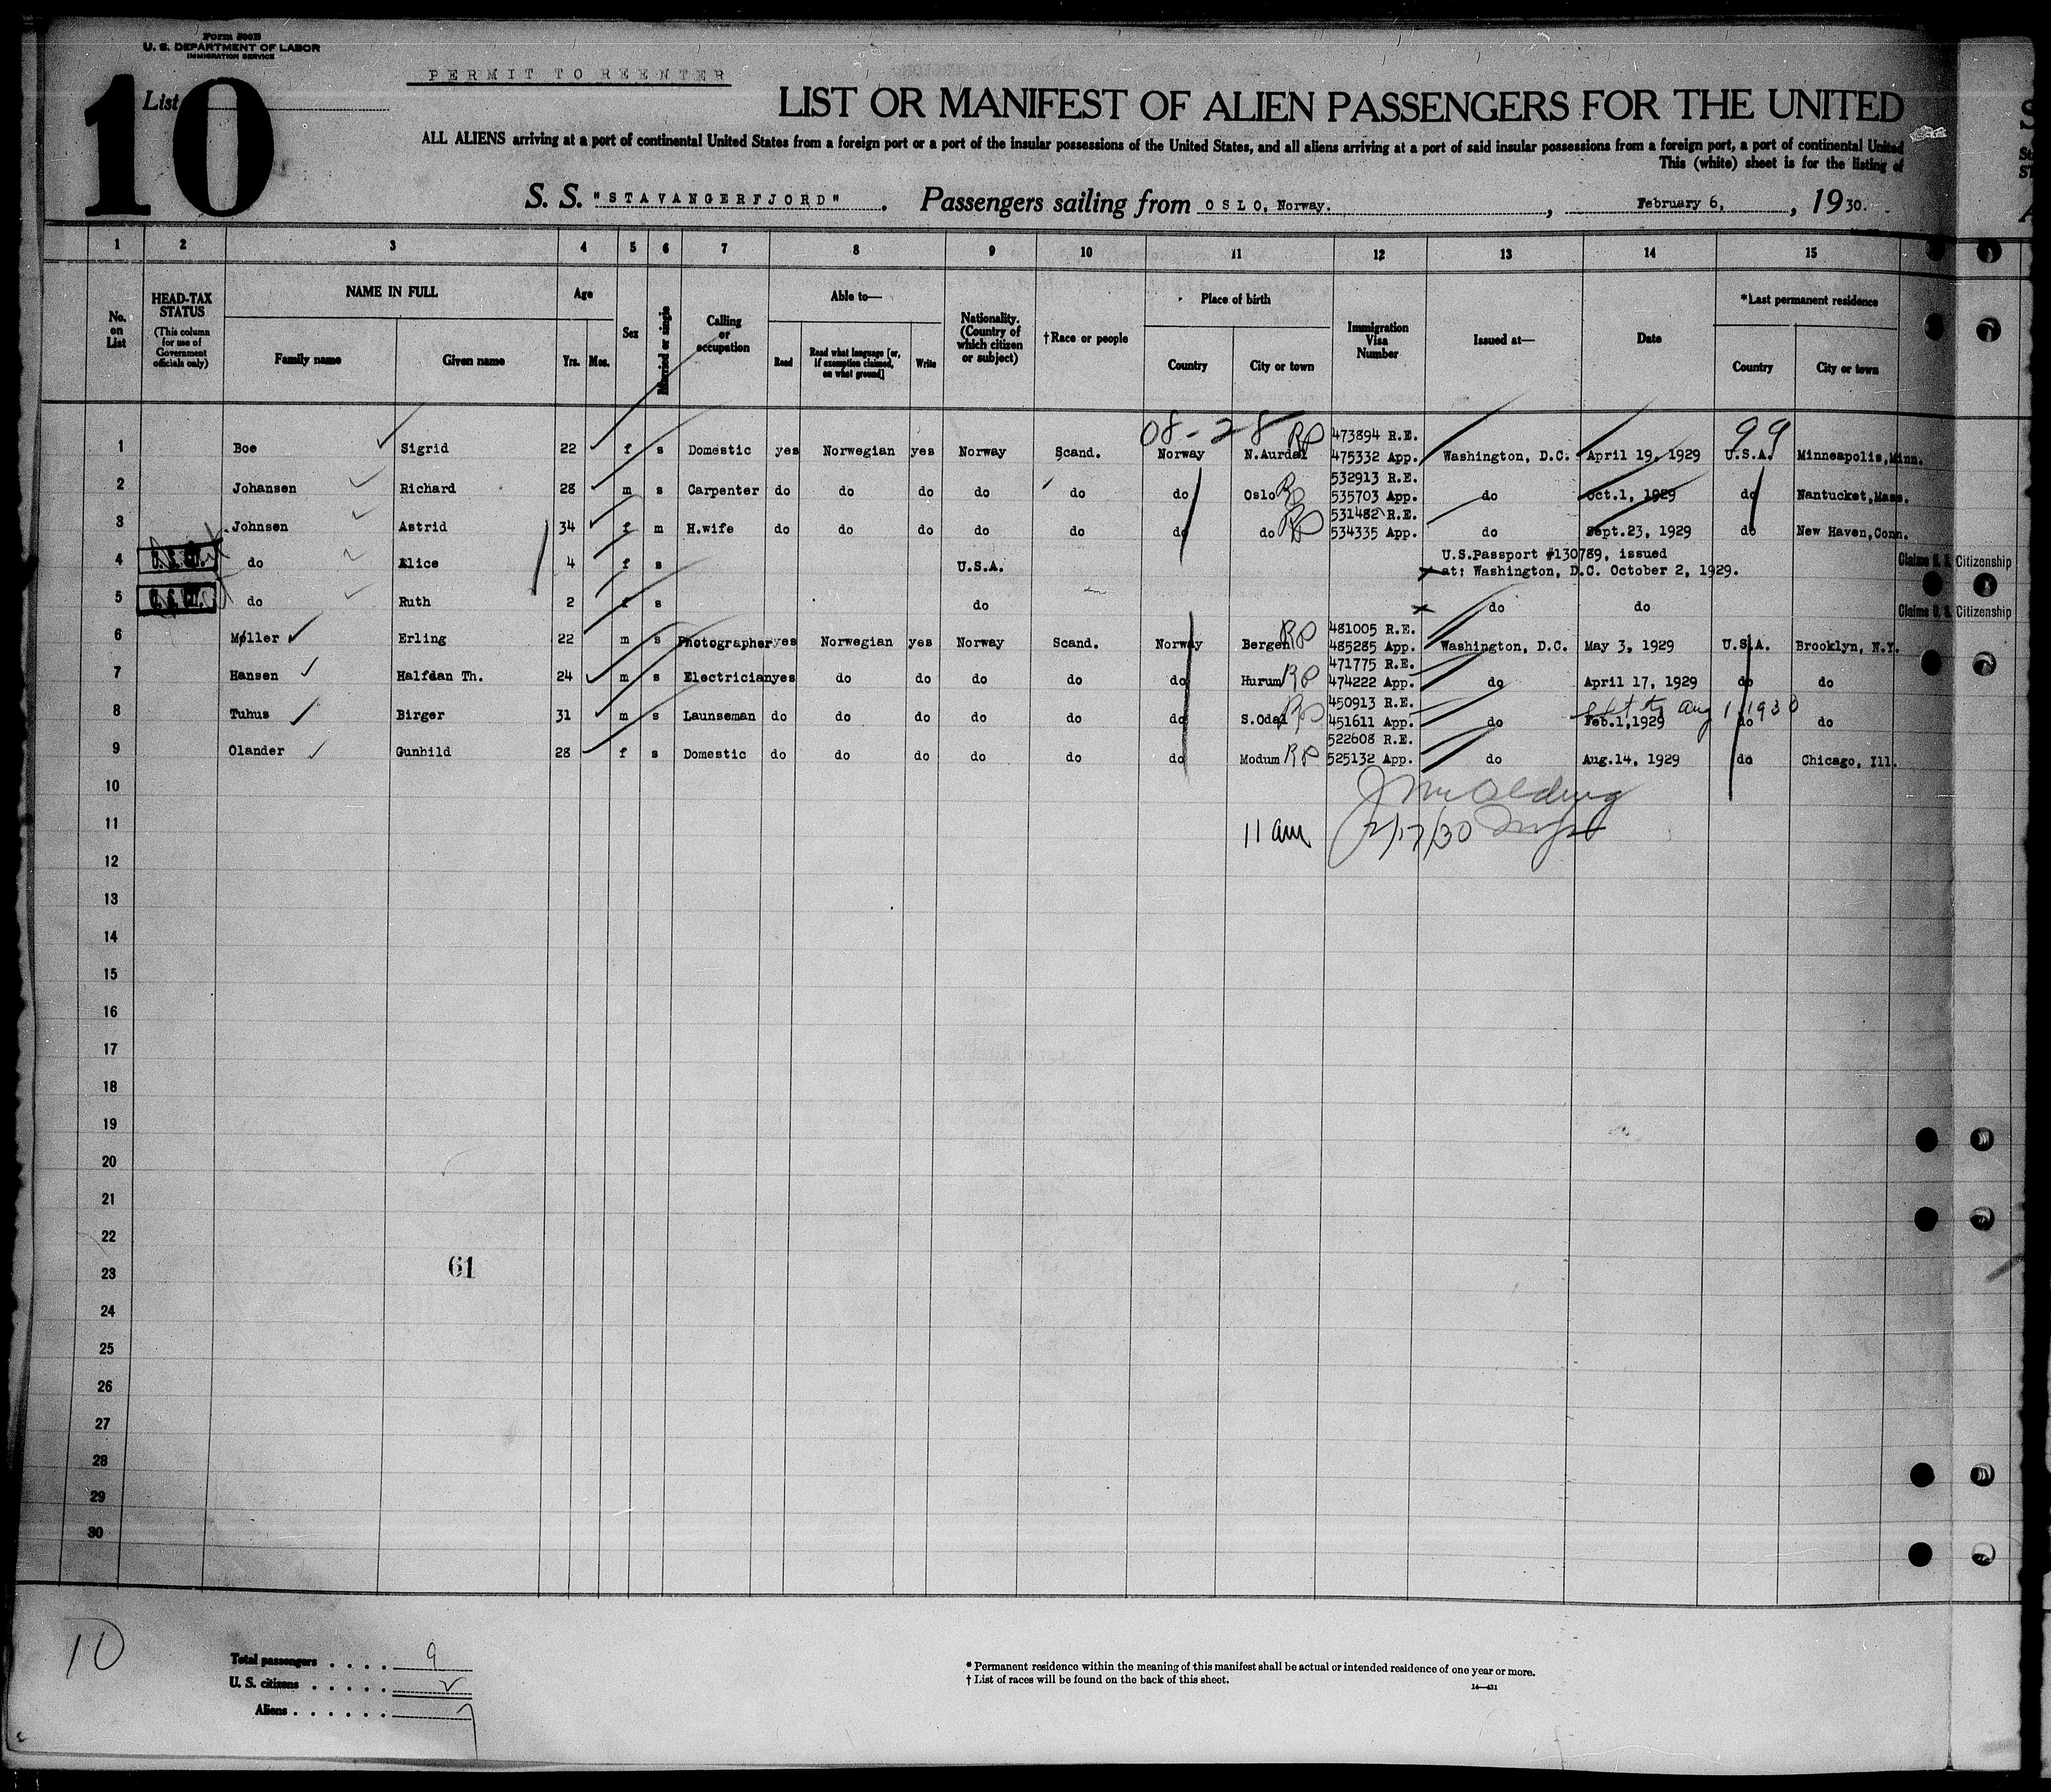 Form 500B
U. S. DEPARTMENT OF LABOR
IMMIGRATION SERVICE
PERMIT TO REENTER
List 10
LIST OR MANIFEST OF ALIEN PASSENGERS FOR THE UNITED
ALL ALIENS arriving at a port of continental United States from a foreign port or a port of the insular possessions of the United States, and all aliens arriving at a port of said insular possessions from a foreign port, a port of continental United
This (white) sheet is for the listing of
S. S. "STAVANGERFJORD". Passengers sailing from OSLO, Norway. , February 6, , 1930.
1 2 3 4 5 6 7 8 9 10 11 12 13 14 15
No. on List
HEAD-TAX STATUS
(This column for use of Government officials only)
NAME IN FULL
Family name Given name
Age
Yrs. Mos.
Sex
Married or single
Calling or occupation
Able to—
Read Read what language [or, if exemption claimed, on what ground] Write
Nationality. (Country of which citizen or subject)
†Race or people
Place of birth
Country City or town
Immigration Visa Number
Issued at—
Date
*Last permanent residence
Country City or town
08-28 99
473894 R.E.
1 Boe Sigrid 22 f s Domestic yes Norwegian yes Norway Scand. Norway N.Aurdal RP 475332 App. Washington, D.C. April 19, 1929 U.S.A. Minneapolis,Minn.
532913 R.E.
2 Johansen Richard 28 m s Carpenter do do do do do do Oslo RP 535703 App. do Oct.1, 1929 do Nantucket,Mass.
531482 R.E.
3 Johnsen Astrid 34 f m H.wife do do do do do do do RP 534335 App. do Sept.23, 1929 do New Haven,Conn.
4 do Alice 4 f s U.S.A. U.S.Passport #130789, issued Claims U.S. Citizenship
at: Washington, D.C. October 2, 1929.
5 do Ruth 2 f s do do do Claims U.S. Citizenship
481005 R.E.
6 Møller Erling 22 m s Photographer yes Norwegian yes Norway Scand. Norway Bergen RP 485285 App. Washington, D.C. May 3, 1929 U.S.A. Brooklyn, N.Y.
471775 R.E.
7 Hansen Halfdan Th. 24 m s Electrician yes do do do do do Hurum RP 474222 App. do April 17, 1929 do do
450913 R.E. Aug 1, 1930
8 Tuhus Birger 31 m s Launseman do do do do do do S.Odal RP 451611 App. do Feb.1,1929 do do
522608 R.E.
9 Olander Gunhild 28 f s Domestic do do do do do do Modum RP 525132 App. do Aug.14, 1929 do Chicago, Ill.
10
11 11 am 2/17/30
12
13
14
15
16
17
18
19
20
21
22
23 61
24
25
26
27
28
29
30
10
Total passengers . . . . 9
U. S. citizens . . . . . 2
Aliens . . . . . . 7
* Permanent residence within the meaning of this manifest shall be actual or intended residence of one year or more.
† List of races will be found on the back of this sheet.
14—431